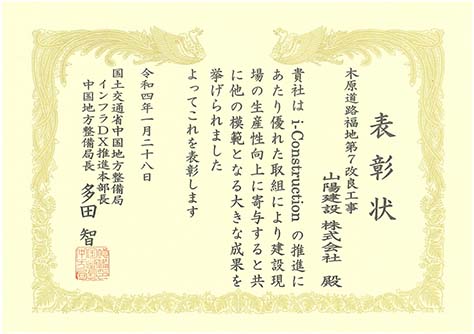 表彰状
木原道路福地第7改良工事
山陽建設 株式会社 殿
貴社は i-Construction の推進に
あたり優れた取組により建設現
場の生産性向上に寄与すると共
に他の模範となる大きな成果を
挙げられました
よってこれを表彰します
令和四年一月二十八日
国土交通省中国地方整備局
インフラDX推進本部長
中国地方整備局長 多田 智